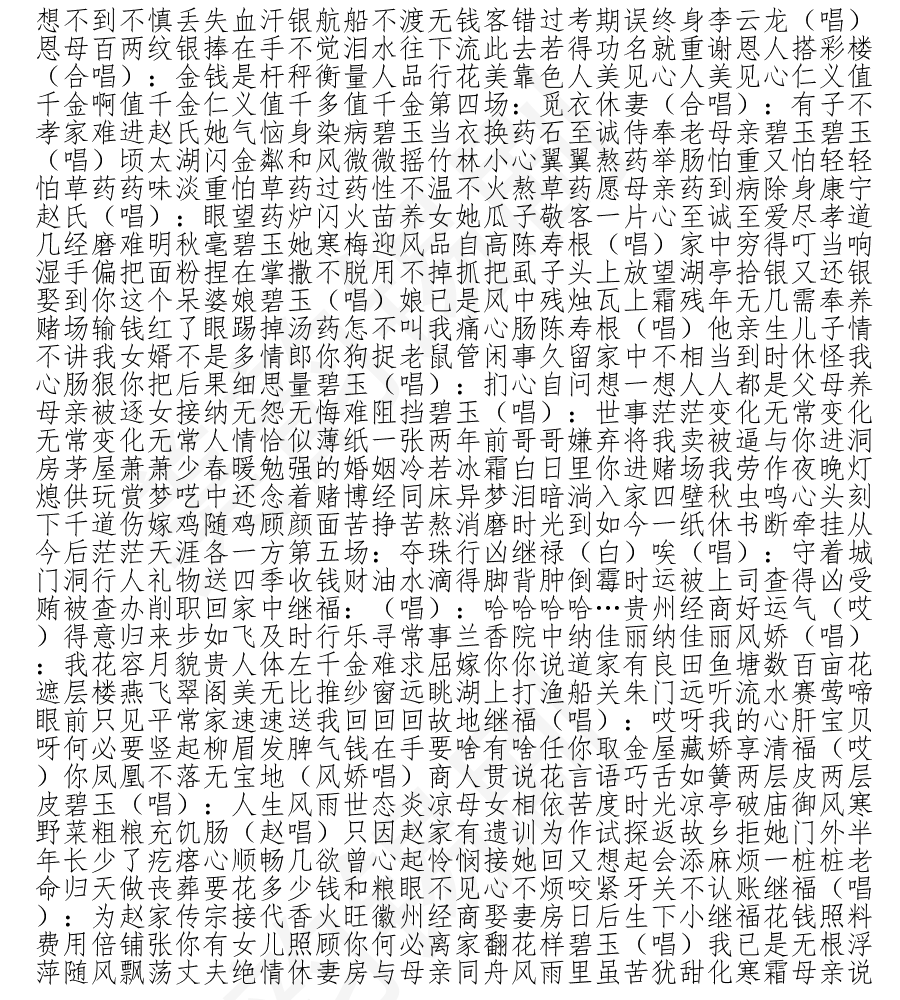 想不到不慎丢失血汗银航船不渡无钱客错过考期误终身李云龙（唱）
恩母百两纹银捧在手不觉泪水往下流此去若得功名就重谢恩人搭彩楼
（合唱）：金钱是杆秤衡量人品行花美靠色人美见心人美见心仁义值
千金啊值千金仁义值千多值千金第四场：觅衣休妻（合唱）：有子不
孝家难进赵氏她气恼身染病碧玉当衣换药石至诚侍奉老母亲碧玉碧玉
（唱）顷太湖闪金粼和风微微摇竹林小心翼翼熬药举肠怕重又怕轻轻
怕草药药味淡重怕草药过药性不温不火熬草药愿母亲药到病除身康宁
赵氏（唱）：眼望药炉闪火苗养女她瓜子敬客一片心至诚至爱尽孝道
几经磨难明秋毫碧玉她寒梅迎风品自高陈寿根（唱）家中穷得叮当响
湿手偏把面粉捏在掌撒不脱用不掉抓把虱子头上放望湖亭拾银又还银
娶到你这个呆婆娘碧玉（唱）娘已是风中残烛瓦上霜残年无几需奉养
赌场输钱红了眼踢掉汤药怎不叫我痛心肠陈寿根（唱）他亲生儿子情
不讲我女婿不是多情郎你狗捉老鼠管闲事久留家中不相当到时休怪我
心肠狠你把后果细思量碧玉（唱）：扪心自问想一想人人都是父母养
母亲被逐女接纳无怨无悔难阻挡碧玉（唱）：世事茫茫变化无常变化
无常变化无常人情恰似薄纸一张两年前哥哥嫌弃将我卖被逼与你进洞
房茅屋萧萧少春暖勉强的婚姻冷若冰霜白日里你进赌场我劳作夜晚灯
熄供玩赏梦呓中还念着赌博经同床异梦泪暗淌入家四壁秋虫鸣心头刻
下千道伤嫁鸡随鸡顾颜面苦挣苦熬消磨时光到如今一纸休书断牵挂从
今后茫茫天涯各一方第五场：夺珠行凶继禄（白）唉（唱）：守着城
门洞行人礼物送四季收钱财油水滴得脚背肿倒霉时运被上司查得凶受
贿被查办削职回家中继福：（唱）：哈哈哈哈…贵州经商好运气（哎
）得意归来步如飞及时行乐寻常事兰香院中纳佳丽纳佳丽风娇（唱）
：我花容月貌贵人体左千金难求屈嫁你你说道家有良田鱼塘数百亩花
遮层楼燕飞翠阁美无比推纱窗远眺湖上打渔船关朱门远听流水赛莺啼
眼前只见平常家速速送我回回回故地继福（唱）：哎呀我的心肝宝贝
呀何必要竖起柳眉发脾气钱在手要啥有啥任你取金屋藏娇享清福（哎
）你凤凰不落无宝地（风娇唱）商人贯说花言语巧舌如簧两层皮两层
皮碧玉（唱）：人生风雨世态炎凉母女相依苦度时光凉亭破庙御风寒
野菜粗粮充饥肠（赵唱）只因赵家有遗训为作试探返故乡拒她门外半
年长少了疙瘩心顺畅几欲曾心起怜悯接她回又想起会添麻烦一桩桩老
命归天做丧葬要花多少钱和粮眼不见心不烦咬紧牙关不认账继福（唱
）：为赵家传宗接代香火旺徽州经商娶妻房日后生下小继福花钱照料
费用倍铺张你有女儿照顾你何必离家翻花样碧玉（唱）我已是无根浮
萍随风飘荡丈夫绝情休妻房与母亲同舟风雨里虽苦犹甜化寒霜母亲说